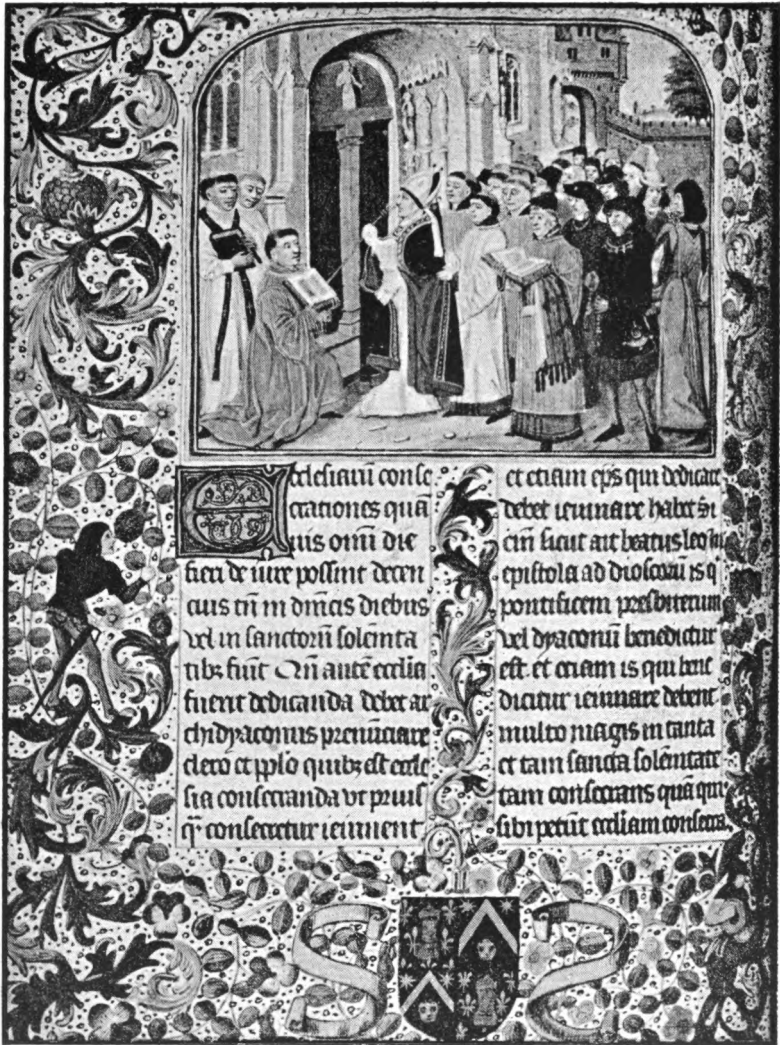 Ecclesiarũ conse
crationes quã
uis omi die
fieri de iure possint decen
cius tñ in dñicis diebus
vel in sanctorũ solẽnita
tibȝ fiũt Qñ autẽ ecclia
fuerit dedicanda debet ar
chidyaconus prenũciare
clero et pplo quibȝ est eccle
sia consecranda vt prius
qͣ consecretur ieiunent
et etiam eps̃ qui dedicare
debet ieiunare habet Si
cut ait beatus leo in
epistola ad dioscorũ is q
pontificem presbiterum
vel dyaconũ benedictur
est. et etiam is qui bene
dicitur ieiunare debent
multo magis in tanta
et tam sancta solẽnitate
tam consecrans quã qui
sibi petũt eccliam consecra